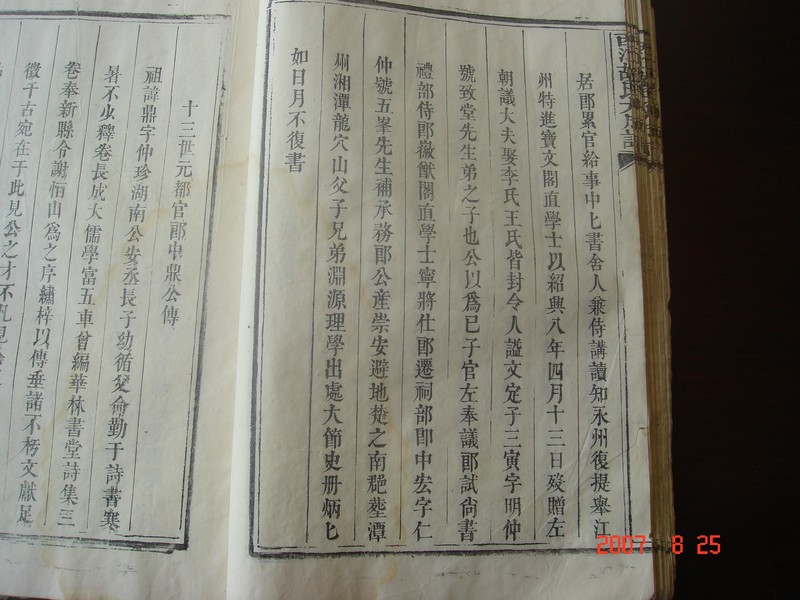 居郎累官給事中匕書舍人兼侍講讀知永州復提舉江
州特進寶文閣直學士以紹興八年四月十三日殁贈左
朝議大夫娶李氏王氏皆封令人謚文定子三寅字明仲
號致堂先生弟之子也公以為已子官左奉議郎試尙書
禮部侍郎徽猷閣直學士寧將仕郎遷祠部郎中宏字仁
仲號五峯先生補承務郎公産崇安避地楚之南郡塟潭
州湘潭龍穴山父子兄弟淵源理學出處大節史册炳匕
如日月不復書
十三世元都官郎中鼎公傳
祖諱鼎字仲珍湖南公安丞長子幼循父命勤于詩書寒
暑不少釋卷長成大儒學富五車曾編華林書堂詩集三
卷奉新縣令謝恒山為之序繡梓以傳垂諸不朽文獻足
徵于古宛在于此見公之才不凡見
2007 8 25